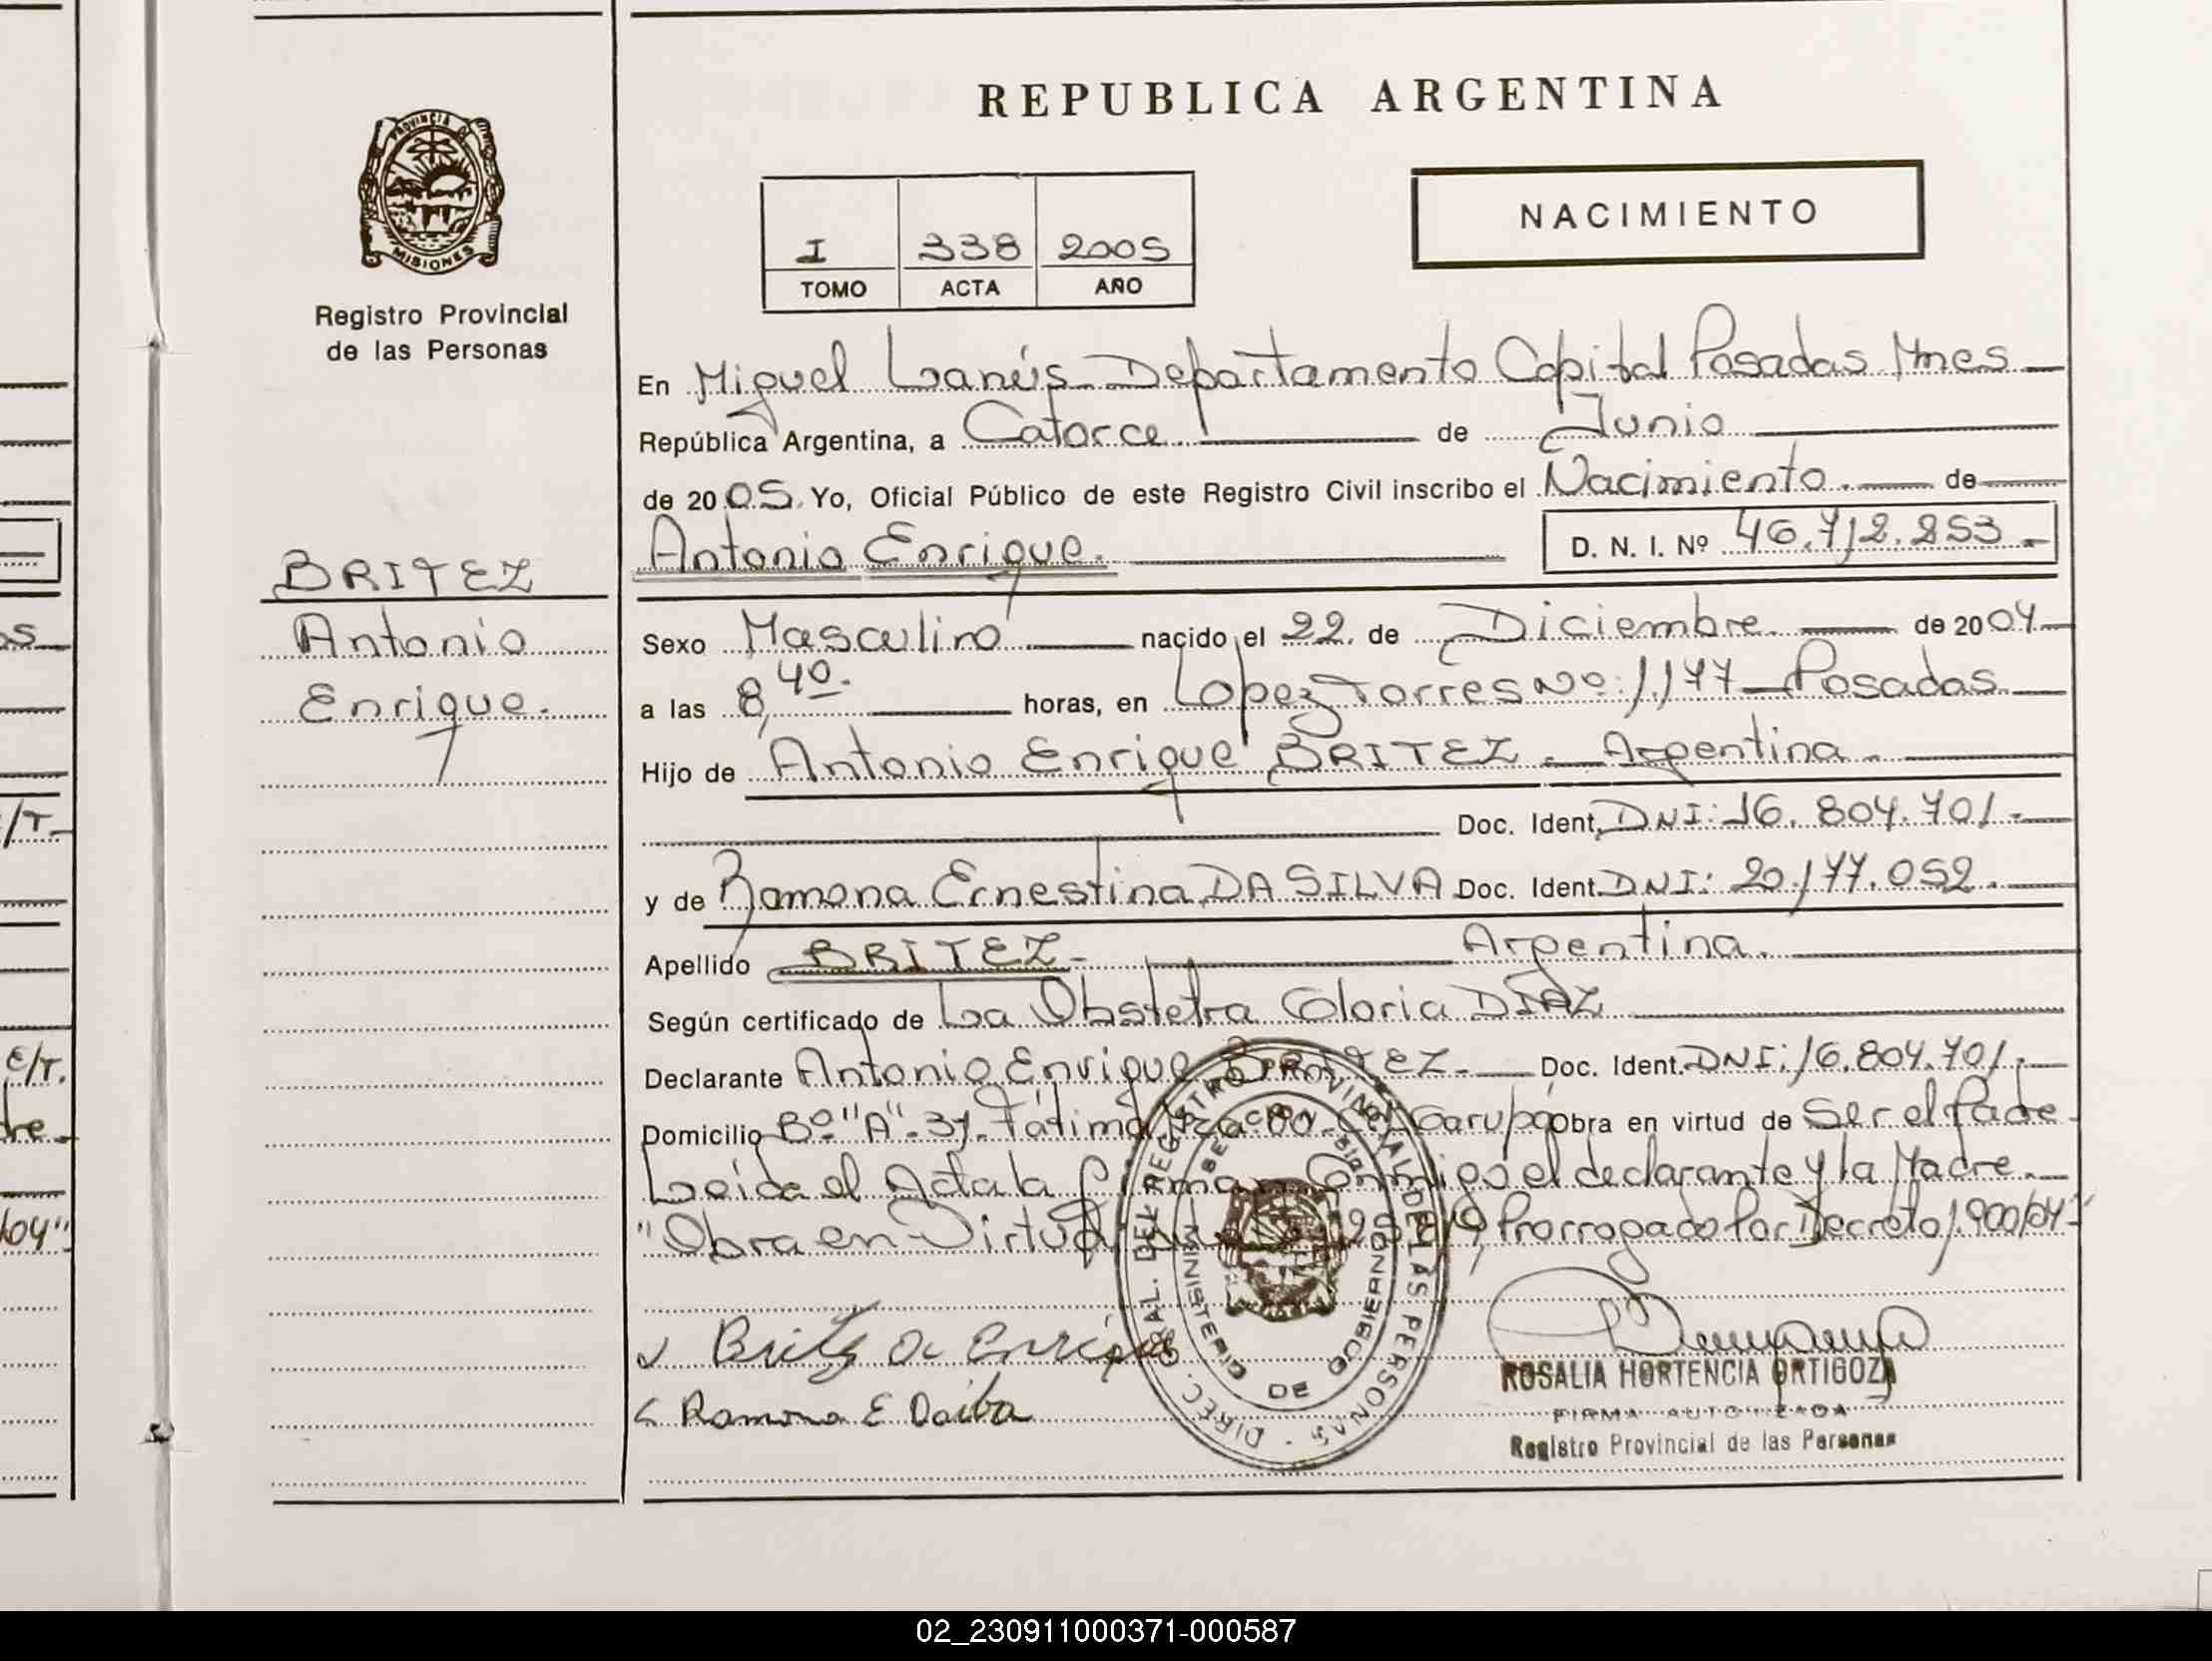 REPUBLICA ARGENTINA
PROVINCIA DE
MISIONES
Registro Provincial
de las Personas
I 338 2005
TOMO ACTA AÑO
NACIMIENTO
En Miguel Lanús Departamento Capital Posadas Mnes
República Argentina, a Catorce de Junio
de 2005. Yo, Oficial Público de este Registro Civil inscribo el Nacimiento. de
Antonio Enrique. D. N. I. Nº 46.712.253.
BRITEZ
Antonio
Enrique.
Sexo Masculino nacido el 22. de Diciembre. de 2004
a las 8,40. horas, en Lopez Torres Nº: 1.177 Posadas
Hijo de Antonio Enrique BRITEZ. Argentina.
Doc. Ident. DNI: 16.804.701.
y de Ramona Ernestina DA SILVA Doc. Ident. DNI: 20.177.052.
Apellido BRITEZ- Argentina.
Según certificado de La Obstetra Gloria DIAZ
Declarante Antonio Enrique BRITEZ. Doc. Ident. DNI: 16.804.701.
Domicilio Bº "A". 37. Fátima Garupá Obra en virtud de Ser el Padre
Leida el Acta la Firman Conmigo el declarante y la Madre.
"Obra en Virtud Prorrogado Por Decreto 1.900/04"
DIREC. GRAL. DEL REGISTRO PROVINCIAL DE LAS PERSONAS
MINISTERIO DE GOBIERNO
Ramona E
ROSALIA HORTENCIA ORTIGOZA
FIRMA AUTORIZADA
Registro Provincial de las Personas
os
E/T.
dre
/04"
02_230911000371-000587